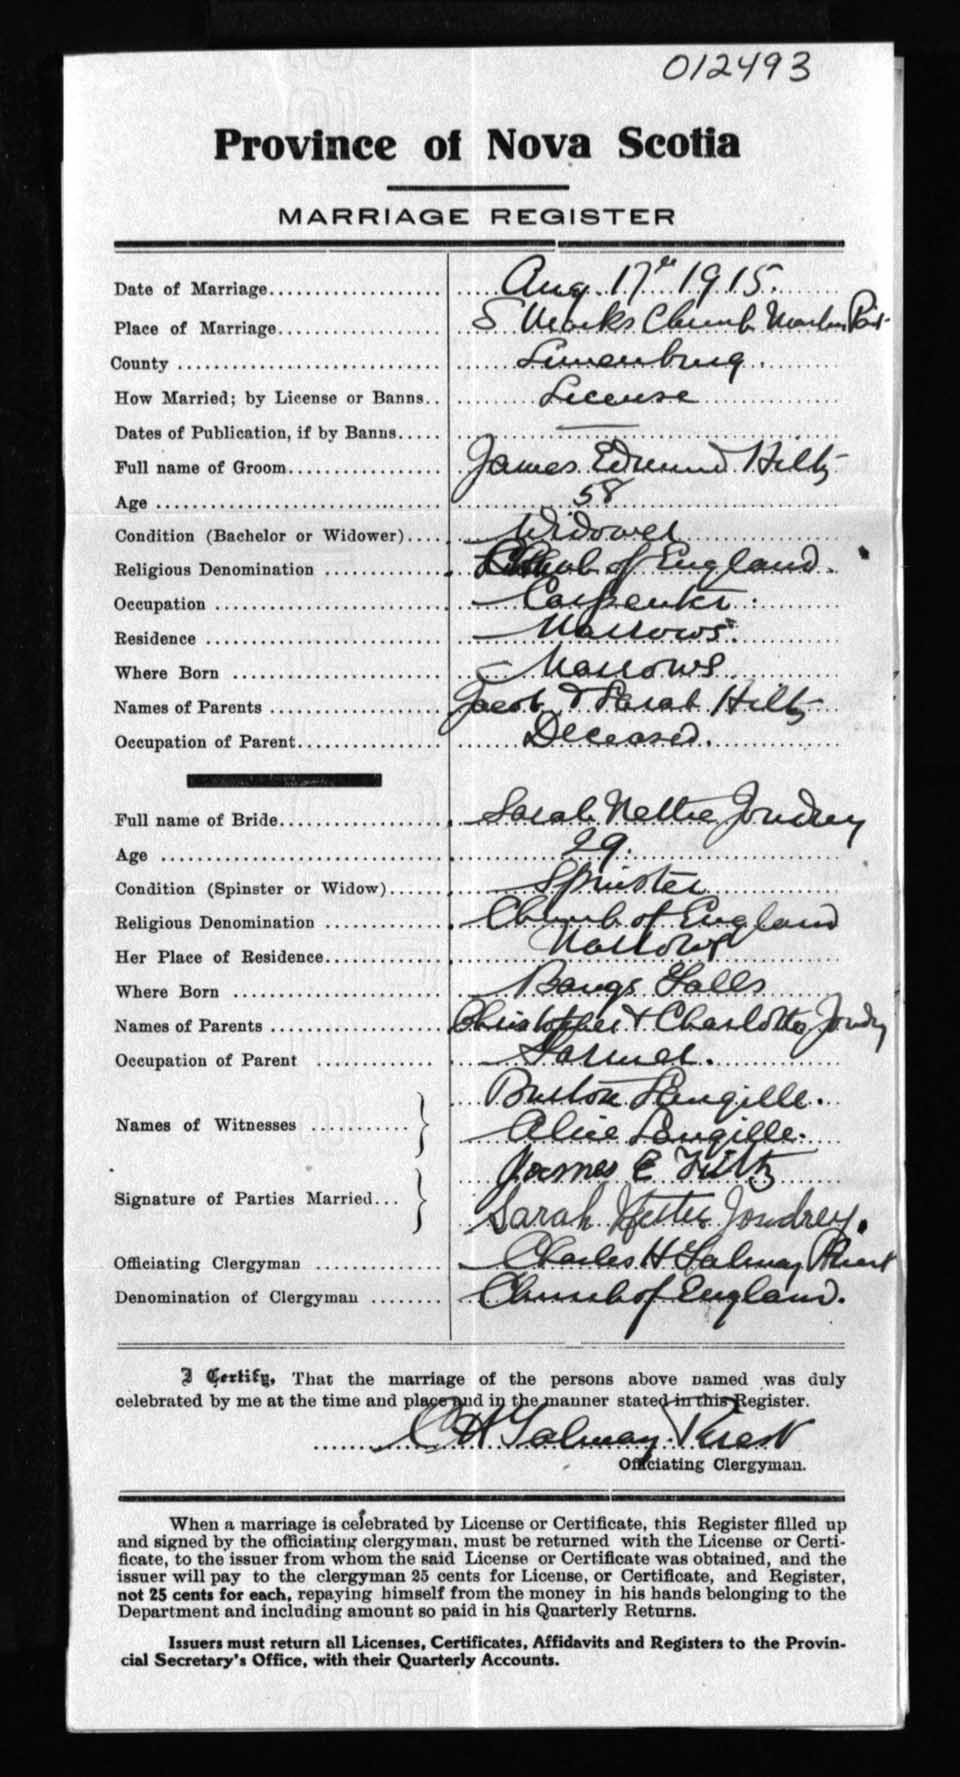 012493
Province of Nova Scotia
MARRIAGE REGISTER
Date of Marriage.................... Aug 17th 1915.
Place of Marriage.................... S Marks Church
County .............................. Lunenburg.
How Married; by License or Banns.. License
Dates of Publication, if by Banns..... —
Full name of Groom.................. James Edmund Hiltz
Age ................................. 58
Condition (Bachelor or Widower).... Widower
Religious Denomination .............. Church of England.
Occupation .......................... Carpenter.
Residence ........................... Narrows.
Where Born ........................ Narrows
Names of Parents .................... Jacob & Sarah Hiltz
Occupation of Parent................. Deceased.
Full name of Bride................... Sarah Nettie Joudrey
Age ................................. 29.
Condition (Spinster or Widow)...... Spinster
Religious Denomination .............. Church of England
Her Place of Residence.............. Narrows
Where Born ........................ Bangs Falls
Names of Parents .................... Christopher & Charlotte Joudry
Occupation of Parent ............... Farmer.
Names of Witnesses ........... Burton Langille.
Alice Langille.
Signature of Parties Married... James E Hiltz
Sarah Nettie Joudrey.
Officiating Clergyman ............... Charles H Talmay Priest
Denomination of Clergyman ........ Church of England.
I Certify, That the marriage of the persons above named was duly
celebrated by me at the time and place and in the manner stated in this Register.
C H Talmay Priest
Officiating Clergyman.
When a marriage is celebrated by License or Certificate, this Register filled up
and signed by the officiating clergyman, must be returned with the License or Certi-
ficate, to the issuer from whom the said License or Certificate was obtained, and the
issuer will pay to the clergyman 25 cents for License, or Certificate, and Register,
not 25 cents for each, repaying himself from the money in his hands belonging to the
Department and including amount so paid in his Quarterly Returns.
Issuers must return all Licenses, Certificates, Affidavits and Registers to the Provin-
cial Secretary's Office, with their Quarterly Accounts.